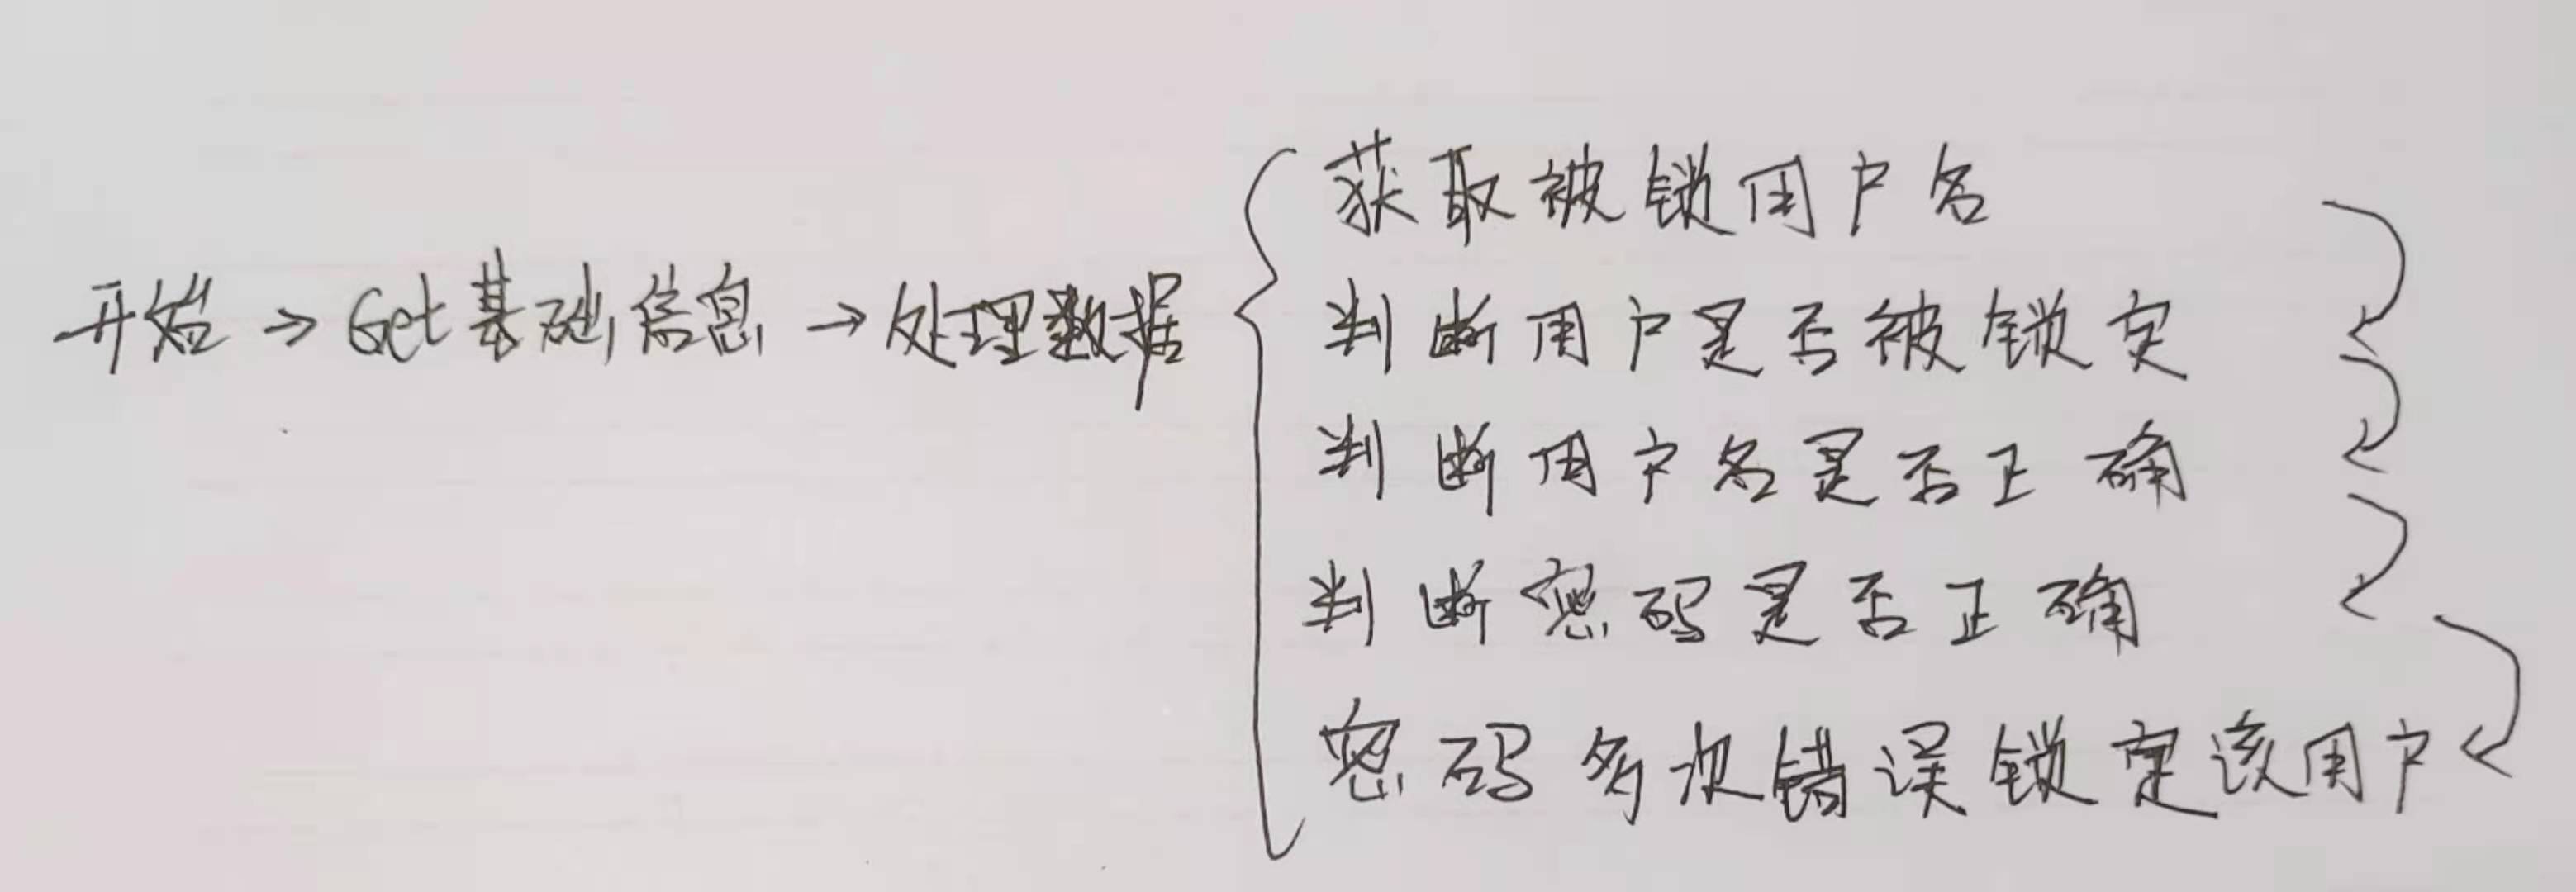 开始→Get基础信息→处理数据
获取被锁用户名
判断用户是否被锁定
判断用户名是否正确
判断密码是否正确
密码多次错误锁定该用户